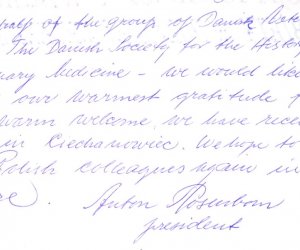 half of the group of Danish Vete
The Danish Society for the Histor
nary Medicine – we would like
our warmest gratitude f
warm welcome we have recei
in Ciechanowiec. We hope to
Polish colleagues again in
Anton Rosenbom
president